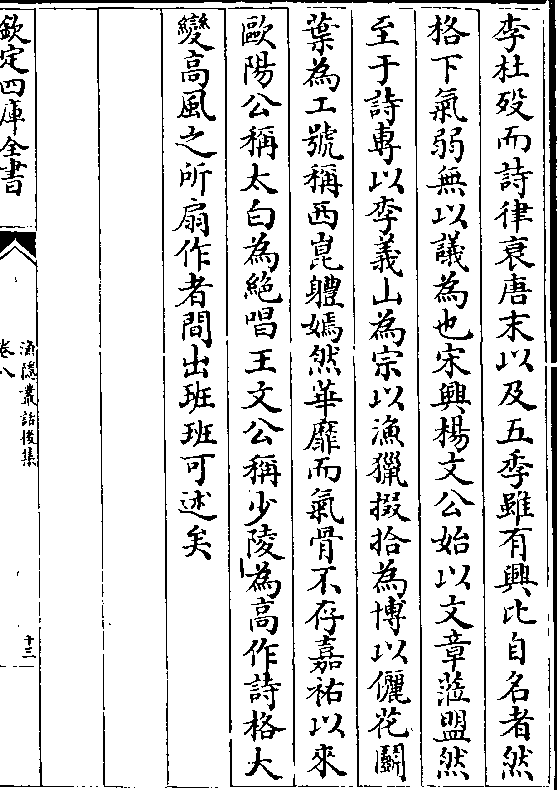 李杜殁而詩律衰唐末以及五季雖有興比自名者然
格下氣弱無以議為也宋興楊文公始以文章蒞盟然
至于詩專以李義山為宗以漁獵掇拾為博以儷花鬭
葉為工號稱西崑軆嫣然華靡而氣骨不存嘉祐以來
歐陽公稱太白為絶唱王文公稱少陵為高作詩格大
變高風之所扇作者間出班班可述矣
欽定四庫全書
漁隱叢話後集
卷八
十三